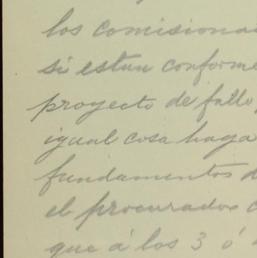 los comisiona
si estan conforme
proyecto de fallo,
igual cosa haga
fundamentos d
el procurador c
que á los 3 ó